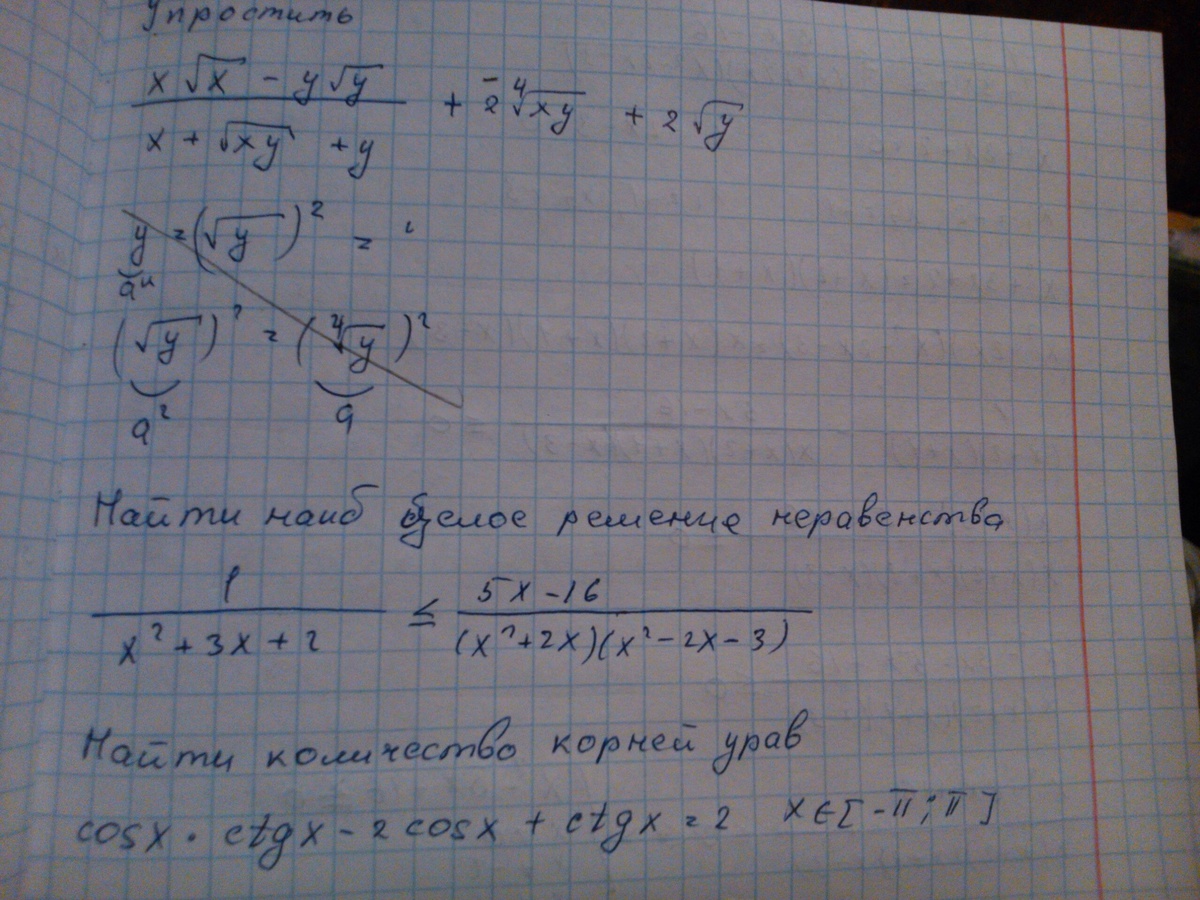 Упростить
x√x - y√y / x + √xy + y + 2 ∜xy + 2√y
y = (√y)² =
(√y)² = (∜y)²
a² a
Найти наиб целое решение неравенства
1 / x² + 3x + 2 ≤ 5x - 16 / (x² + 2x)(x² - 2x - 3)
Найти количество корней урав
cosx · ctgx - 2 cosx + ctgx = 2 x ∈ [-π; π]